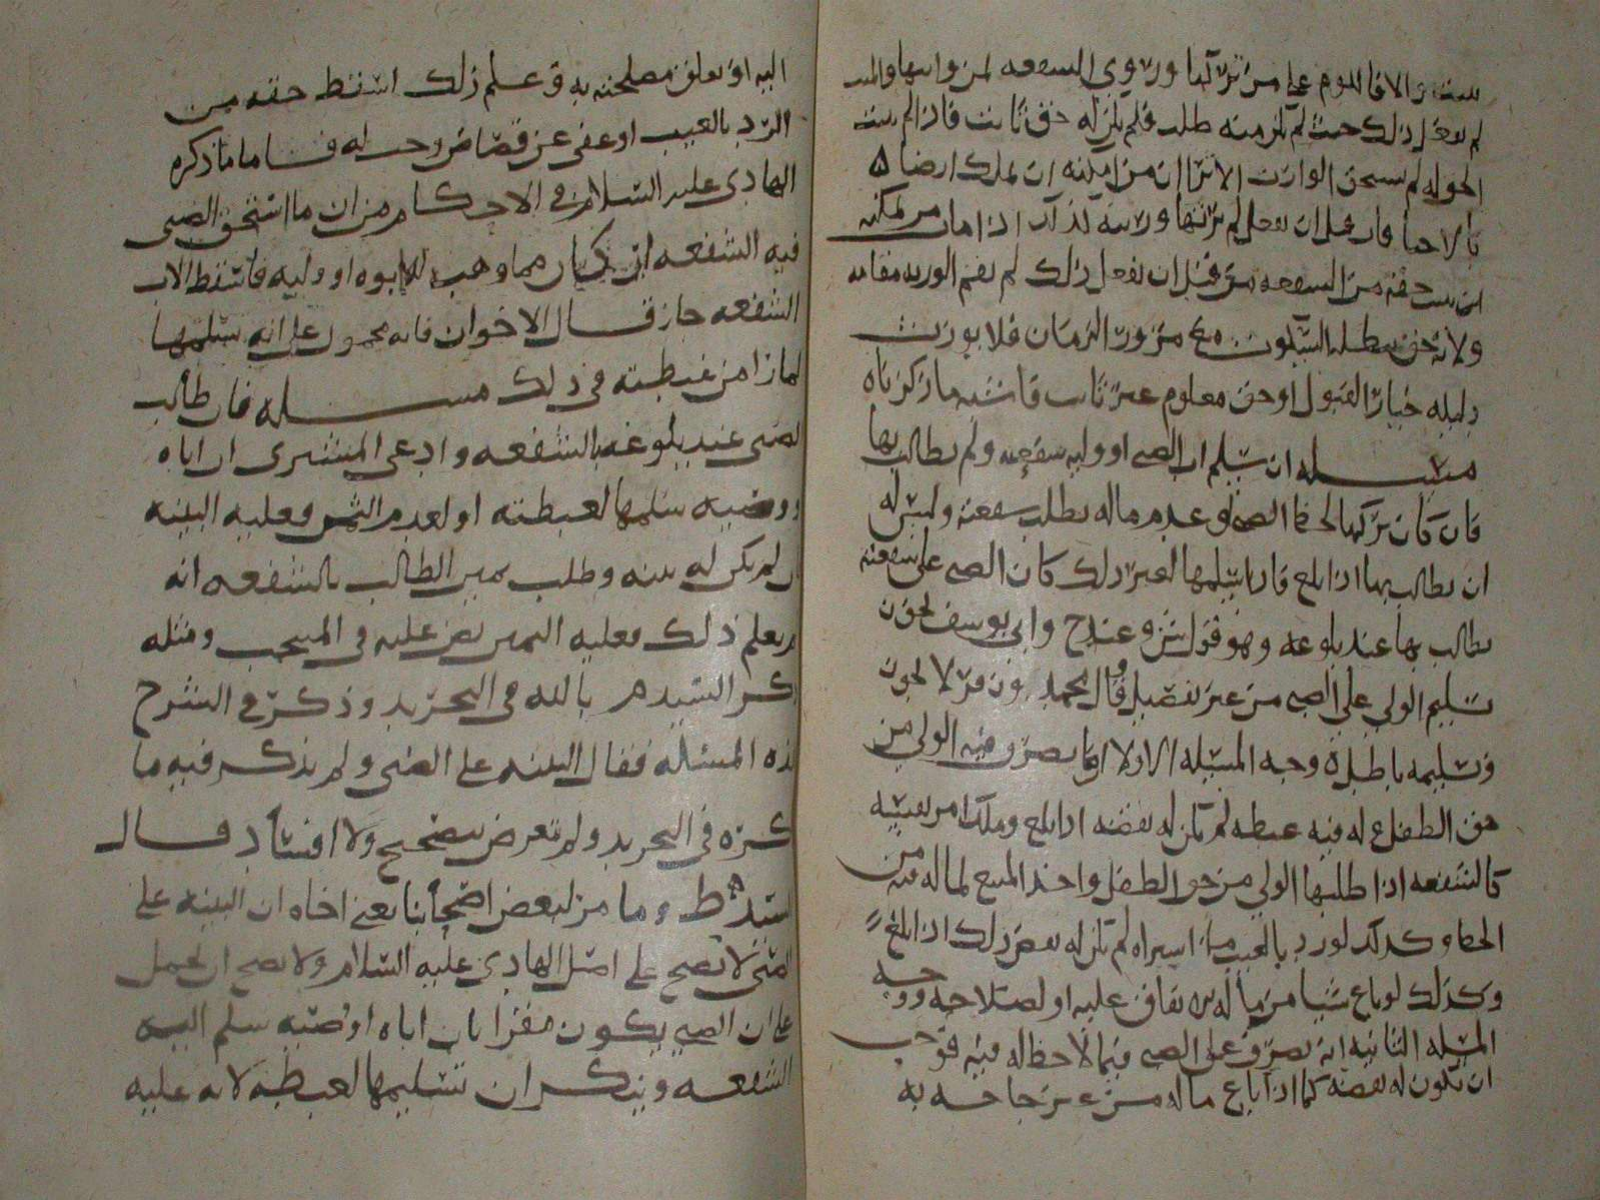 لم يفعل ذلك حيث لم يكن منه طلب فلم يكن له حق ثابت فاذا لم يثبت
الحق له لم يستحق الوارث الا ترا ان من امكنه ان يملك ارضا
بالاحيا فان قبل ان يفعل لم يرثها ورثته لذلك اذا مات من يمكنه
ان يثبت حقه من الشفعه من قبل ان يفعل ذلك لم يقم الورثه مقامه
ولانه حق يبطله السكوت مع مرور الزمان فلا يورث
دليله خيار القبول او حق معلوم غير ثابت فاشبه ما ذكرناه
مسئله ان سلم اب الصبي او وليه شفعته ولم يطالب بها
فان كان تركها لحظ الصبي او عدم ماله بطلت شفعته وليس له
ان يطالب بها اذا بلغ فان سلمها لغير ذلك كان الصبي على شفعته
يطالب بها عند بلوغه وهو قول ش وعند ح وابي يوسف يجوز
تسليم الولي على الصبي من غير تفصيل وقال محمد وزفر لا يجوز
وتسليمه باطل وجه المسئله الاولا ان ما تصرف فيه الولي من
حق الطفل مما له فيه غبطه لم يكن له نقضه اذا بلغ وملك امر نفسه
كالشفعه اذا طلبها الولي من حق الطفل واخذ المبيع لماله فيه من
الحظ وكذلك لو رد بالعيب ما اشتراه لم يكن له نقض ذلك اذا بلغ
وكذلك لو باع شيا من ماله لينفق عليه او لصلاحه ووجه
المسئله الثانيه انه تصرف على الصبي فيما لا حظ له فيه فوجب
ان يكون له نقضه كما اذا باع ماله من غير حاجه به
اليه او تعلق مصلحته به وعلم ذلك اسقط حقه من
الرد بالعيب او عفى عن قصاص وجب له فاما ما ذكره
الهادي عليه السلام في الاحكام من ان ما استحق الصبي
فيه الشفعه ان كان مما وهب له ابوه او وليه فاسقط الاب
الشفعه جاز قال الاخوان فانه محمول على انه سلمها
لما راا من غبطته في ذلك مسئله فان طالب
الصبي عند بلوغه بالشفعه وادعى المشترى ان اباه
او وصيه سلمها لغبطته او لعدم الثمن فعليه البينه
ان لم يكن له بينه وطلب يمين الطالب بالشفعه انه
لم يعلم ذلك فعليه اليمين نص عليه في المنتخب ومثله
ذكر السيد م بالله في التحريد وذكر في الشرح
هذه المسئله فقال البينه على الصبي ولم يذكر فيه ما
ذكره في التحريد ولم يتعرض بتصحيح ولا افساد قال
السيد ط وما مر لبعض اصحابنا يعني اخاه ان البينه على
الصبي لا يصح على اصل الهادي عليه السلام ولا يصح ان يحمل
على ان الصبي يكون مقرا بان اباه او وصيه سلم البيه
الشفعه وينكر ان تسليمها لغبطه لانه عليه